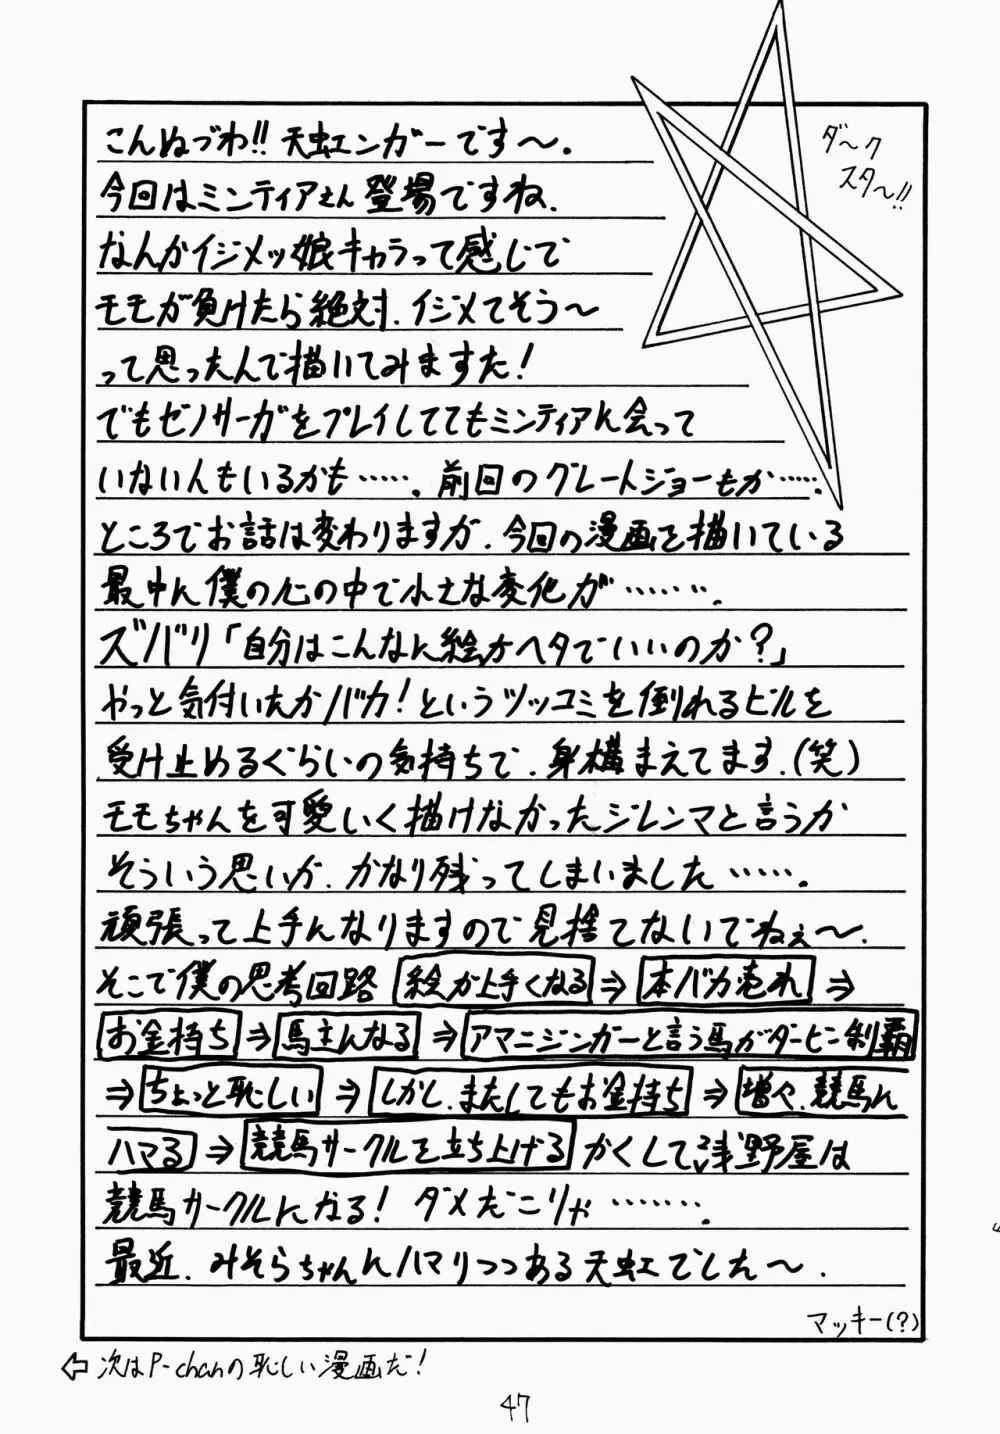 こんぬづわ!! 天虹エンガーです〜.
今回はミンティアさん登場ですね.
なんかイジメッ娘キャラって感じで
モモが負けたら絶対、イジメてそう〜
って思ったんで描いてみますた!
でもゼノサーガをプレイしててもミンティアに会って
いない人もいるかも‥‥‥. 前回のグレートジョーもか‥‥‥.
ところでお話は変わりますが、今回の漫画を描いている
最中に僕の心の中で小さな変化が‥‥‥‥.
ズバリ「自分はこんなに絵がヘタでいいのか?」
やっと気付いたかバカ!というツッコミを倒れるビルを
受け止めるぐらいの気持ちで、身構まえてます.(笑)
モモちゃんを可愛いく描けなかったジレンマと言うか
そういう思いが、かなり残ってしまいました‥‥‥.
頑張って上手になりますので見捨てないでねぇ〜.
そこで僕の思考回路 絵が上手くなる ⇒ 本バカ売れ ⇒
お金持ち ⇒ 馬主になる ⇒ アマニジンガーと言う馬がダービー制覇
⇒ ちょっと恥しい ⇒ しかし、またしてもお金持ち ⇒ 増々、競馬に
ハマる ⇒ 競馬サークルを立ち上げる かくして浅野屋は
競馬サークルになる! ダメだこりゃ‥‥‥‥.
最近、みそらちゃんにハマりつつある天虹でした〜.
マッキー(?)
ダ〜ク
スタ〜!!
⇦ 次はP-chanの恥しい漫画だ!
47